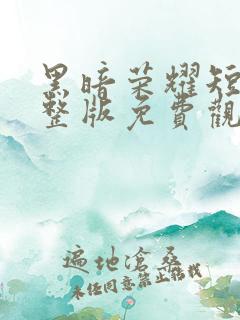 黑暗荣耀短
整版免費觀
遍地滄桑
未经同意禁止轉载